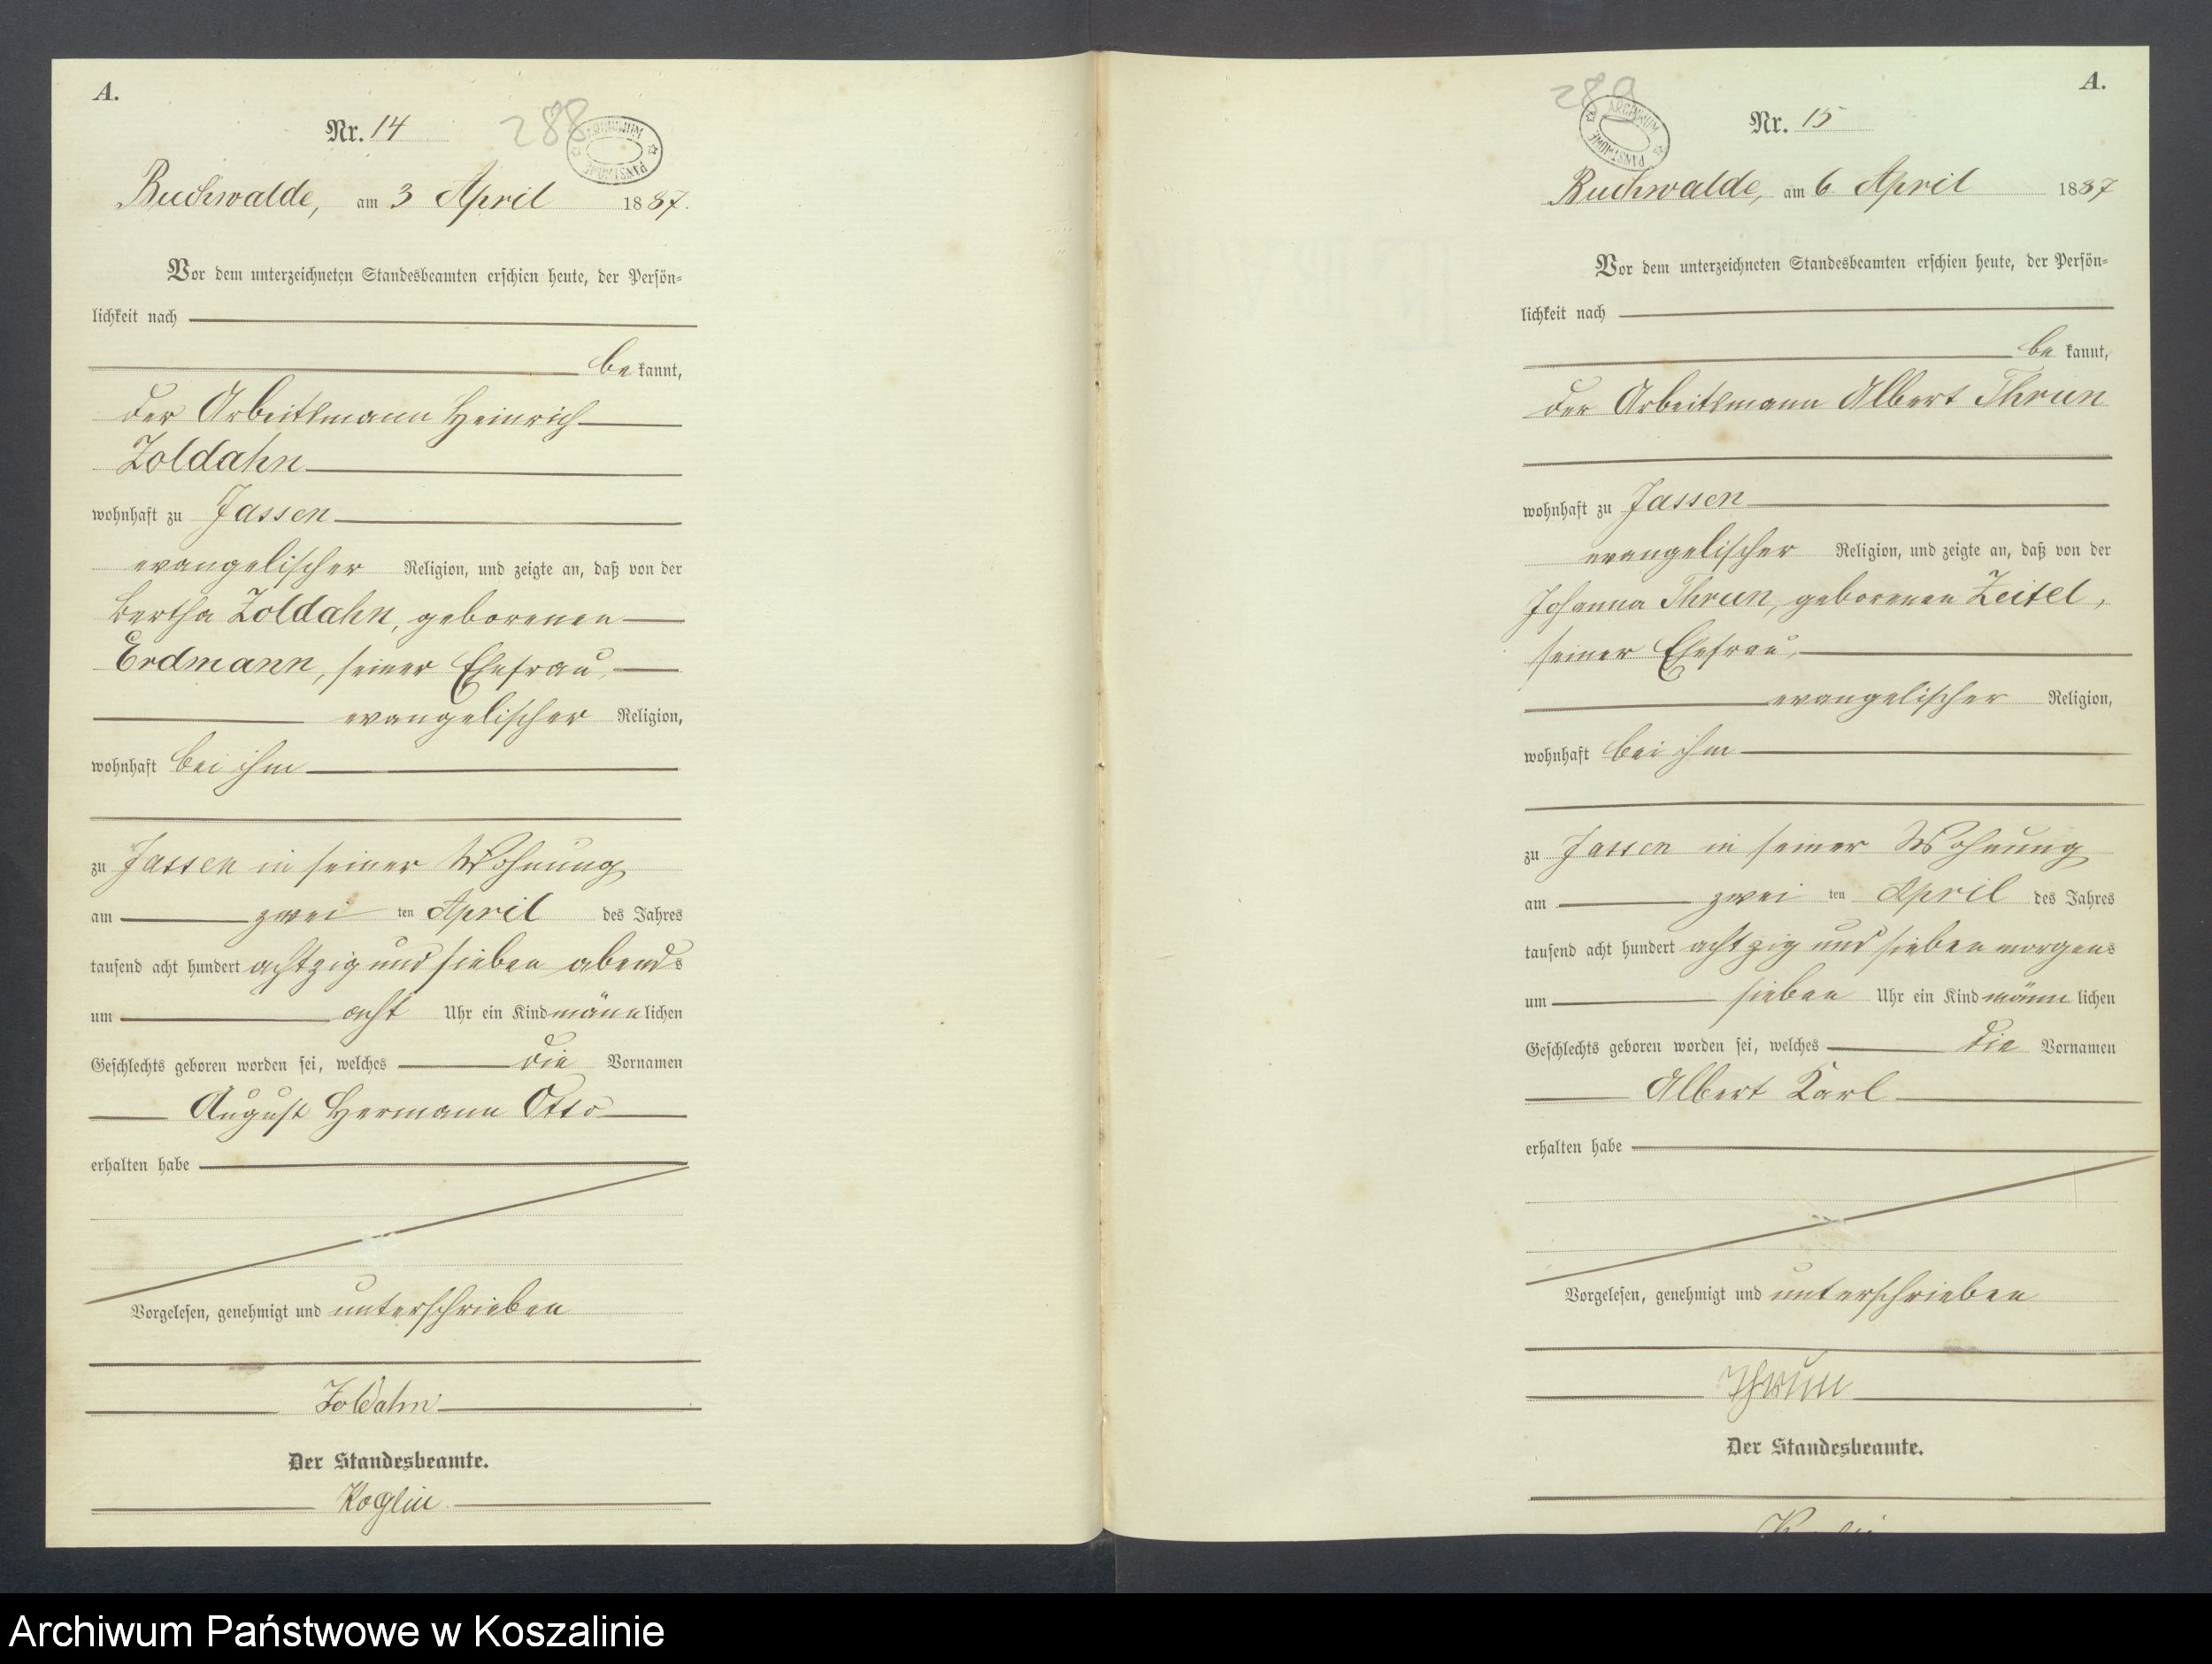 A.
Nr. 14
288
ARCHIWUM PAŃSTWOWE
Buchwalde, am 3 April 1887.
Vor dem unterzeichneten Standesbeamten erschien heute, der Persön-
lichkeit nach
be kannt,
der Arbeitsmann Heinrich
Zoldahn
wohnhaft zu Jassen
evangelischer Religion, und zeigte an, daß von der
Bertha Zoldahn, geborenen
Erdmann, seiner Ehefrau,
evangelischer Religion,
wohnhaft bei ihm
zu Jassen in seiner Wohnung
am zwei ten April des Jahres
tausend acht hundert achtzig und sieben abends
um acht Uhr ein Kind männlichen
Geschlechts geboren worden sei, welches die Vornamen
August Hermann Otto
erhalten habe
Vorgelesen, genehmigt und unterschrieben
Zoldahn
Der Standesbeamte.
Koglin
A.
Nr. 15
289
ARCHIWUM PAŃSTWOWE
Buchwalde, am 6 April 1887
Vor dem unterzeichneten Standesbeamten erschien heute, der Persön-
lichkeit nach
be kannt,
der Arbeitsmann Albert Thrun
wohnhaft zu Jassen
evangelischer Religion, und zeigte an, daß von der
Johanna Thrun, geborenen Zeitel,
seiner Ehefrau,
evangelischer Religion,
wohnhaft bei ihm
zu Jassen in seiner Wohnung
am zwei ten April des Jahres
tausend acht hundert achtzig und sieben morgens
um sieben Uhr ein Kind männ lichen
Geschlechts geboren worden sei, welches die Vornamen
Albert Karl
erhalten habe
Vorgelesen, genehmigt und unterschrieben
Thrun
Der Standesbeamte.
Archiwum Państwowe w Koszalinie